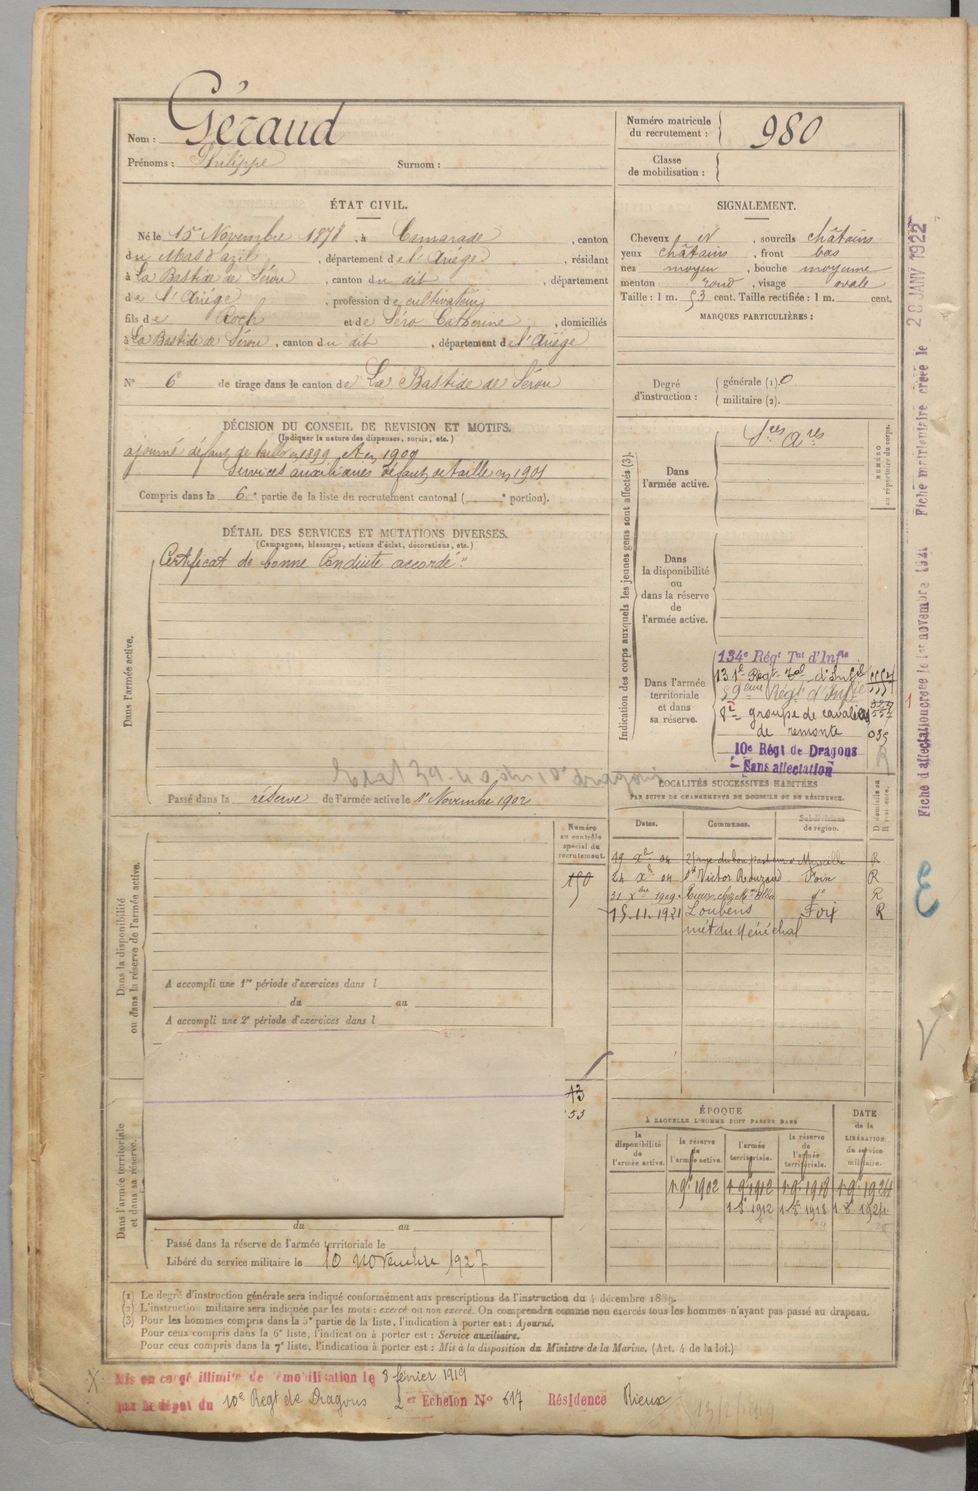 Nom : Géraud
Prénoms : Philippe Surnom :
Numéro matricule du recrutement : 980
Classe de mobilisation :
ÉTAT CIVIL.
Né le 15 Novembre 1878, à Camarade, canton
du Mas d'azil, département de l'Ariège, résidant
à La Bastide de Sérou, canton du dit, département
de l'Ariège, profession de cultivateur
fils de Roch et de Séro Catherine, domiciliés
à La Bastide de Sérou, canton du dit, département de l'Ariège
N° 6 de tirage dans le canton de La Bastide de Sérou
SIGNALEMENT.
Cheveux et, sourcils châtains
yeux châtains, front bas
nez moyen, bouche moyenne
menton rond, visage ovale
Taille : 1 m. 53 cent. Taille rectifiée : 1 m. cent.
MARQUES PARTICULIÈRES :
Degré d'instruction : générale (1). 0
militaire (2).
DÉCISION DU CONSEIL DE REVISION ET MOTIFS.
(Indiquer la nature des dispenses, sursis, etc.)
ajourné défaut de taille en 1899 et en 1900
Services auxiliaires défaut de taille en 1901
Compris dans la 6e partie de la liste du recrutement cantonal ( e portion).
DÉTAIL DES SERVICES ET MUTATIONS DIVERSES.
(Campagnes, blessures, actions d'éclat, décorations, etc.)
Certificat de bonne Conduite accordé
Dans l'armée active.
Passé dans la réserve de l'armée active le 1er Novembre 1902
Indication des corps auxquels les jeunes gens sont affectés (3).
NUMÉRO au répertoire du corps.
Dans l'armée active.
Sces Ares
Dans la disponibilité ou dans la réserve de l'armée active.
Dans l'armée territoriale et dans sa réserve.
134e Régt Tal d'Infie
131e Régt Tal d'Infie
59ème Régt d'Infie
8e groupe de cavaliers
de remonte 035
10e Régt de Dragons
Sans affectation
R
LOCALITÉS SUCCESSIVES HABITÉES
PAR SUITE DE CHANGEMENTS DE DOMICILE OU DE RÉSIDENCE.
Dates. Communes. Subdivisions de région. D domicile ou R résidence.
R
24 Xe 04 St Victor Rouzaud Foix R
31 Xbre 1909 R
15.11.1921 Loubens Foix R
mét. du Sénéchal
Numéro au contrôle spécial du recrutement.
Dans la disponibilité ou dans la réserve de l'armée active.
A accompli une 1re période d'exercices dans l
du au
A accompli une 2e période d'exercices dans l
53
Dans l'armée territoriale et dans sa réserve.
du au
Passé dans la réserve de l'armée territoriale le
Libéré du service militaire le 10 novembre 1927
ÉPOQUE
À LAQUELLE L'HOMME DOIT PASSER DANS
DATE de la LIBÉRATION du service militaire.
la disponibilité de l'armée active. la réserve de l'armée active. l'armée territoriale. la réserve de l'armée territoriale.
1 9e 1902 1 9e 1912 1 9e 1918 1 9e 1924
1 8e 1912 1 8e 1918 1 8e 1924
(1) Le degré d'instruction générale sera indiqué conformément aux prescriptions de l'instruction du 4 décembre 1889.
(2) L'instruction militaire sera indiquée par les mots : exercé ou non exercé. On comprendra comme non exercés tous les hommes n'ayant pas passé au drapeau.
(3) Pour les hommes compris dans la 5e partie de la liste, l'indication à porter est : Ajourné.
Pour ceux compris dans la 6e liste, l'indication à porter est : Service auxiliaire.
Pour ceux compris dans la 7e liste, l'indication à porter est : Mis à la disposition du Ministre de la Marine. (Art. 4 de la loi.)
Mis en congé illimité de démobilisation le 8 février 1919
par le dépôt du 10e Régt de Dragons 2er Echelon N° 617 Résidence Rieux
Fiche d'affectation créée le 1er novembre 1921 Fiche matriculaire créée le 20 JANV 1922